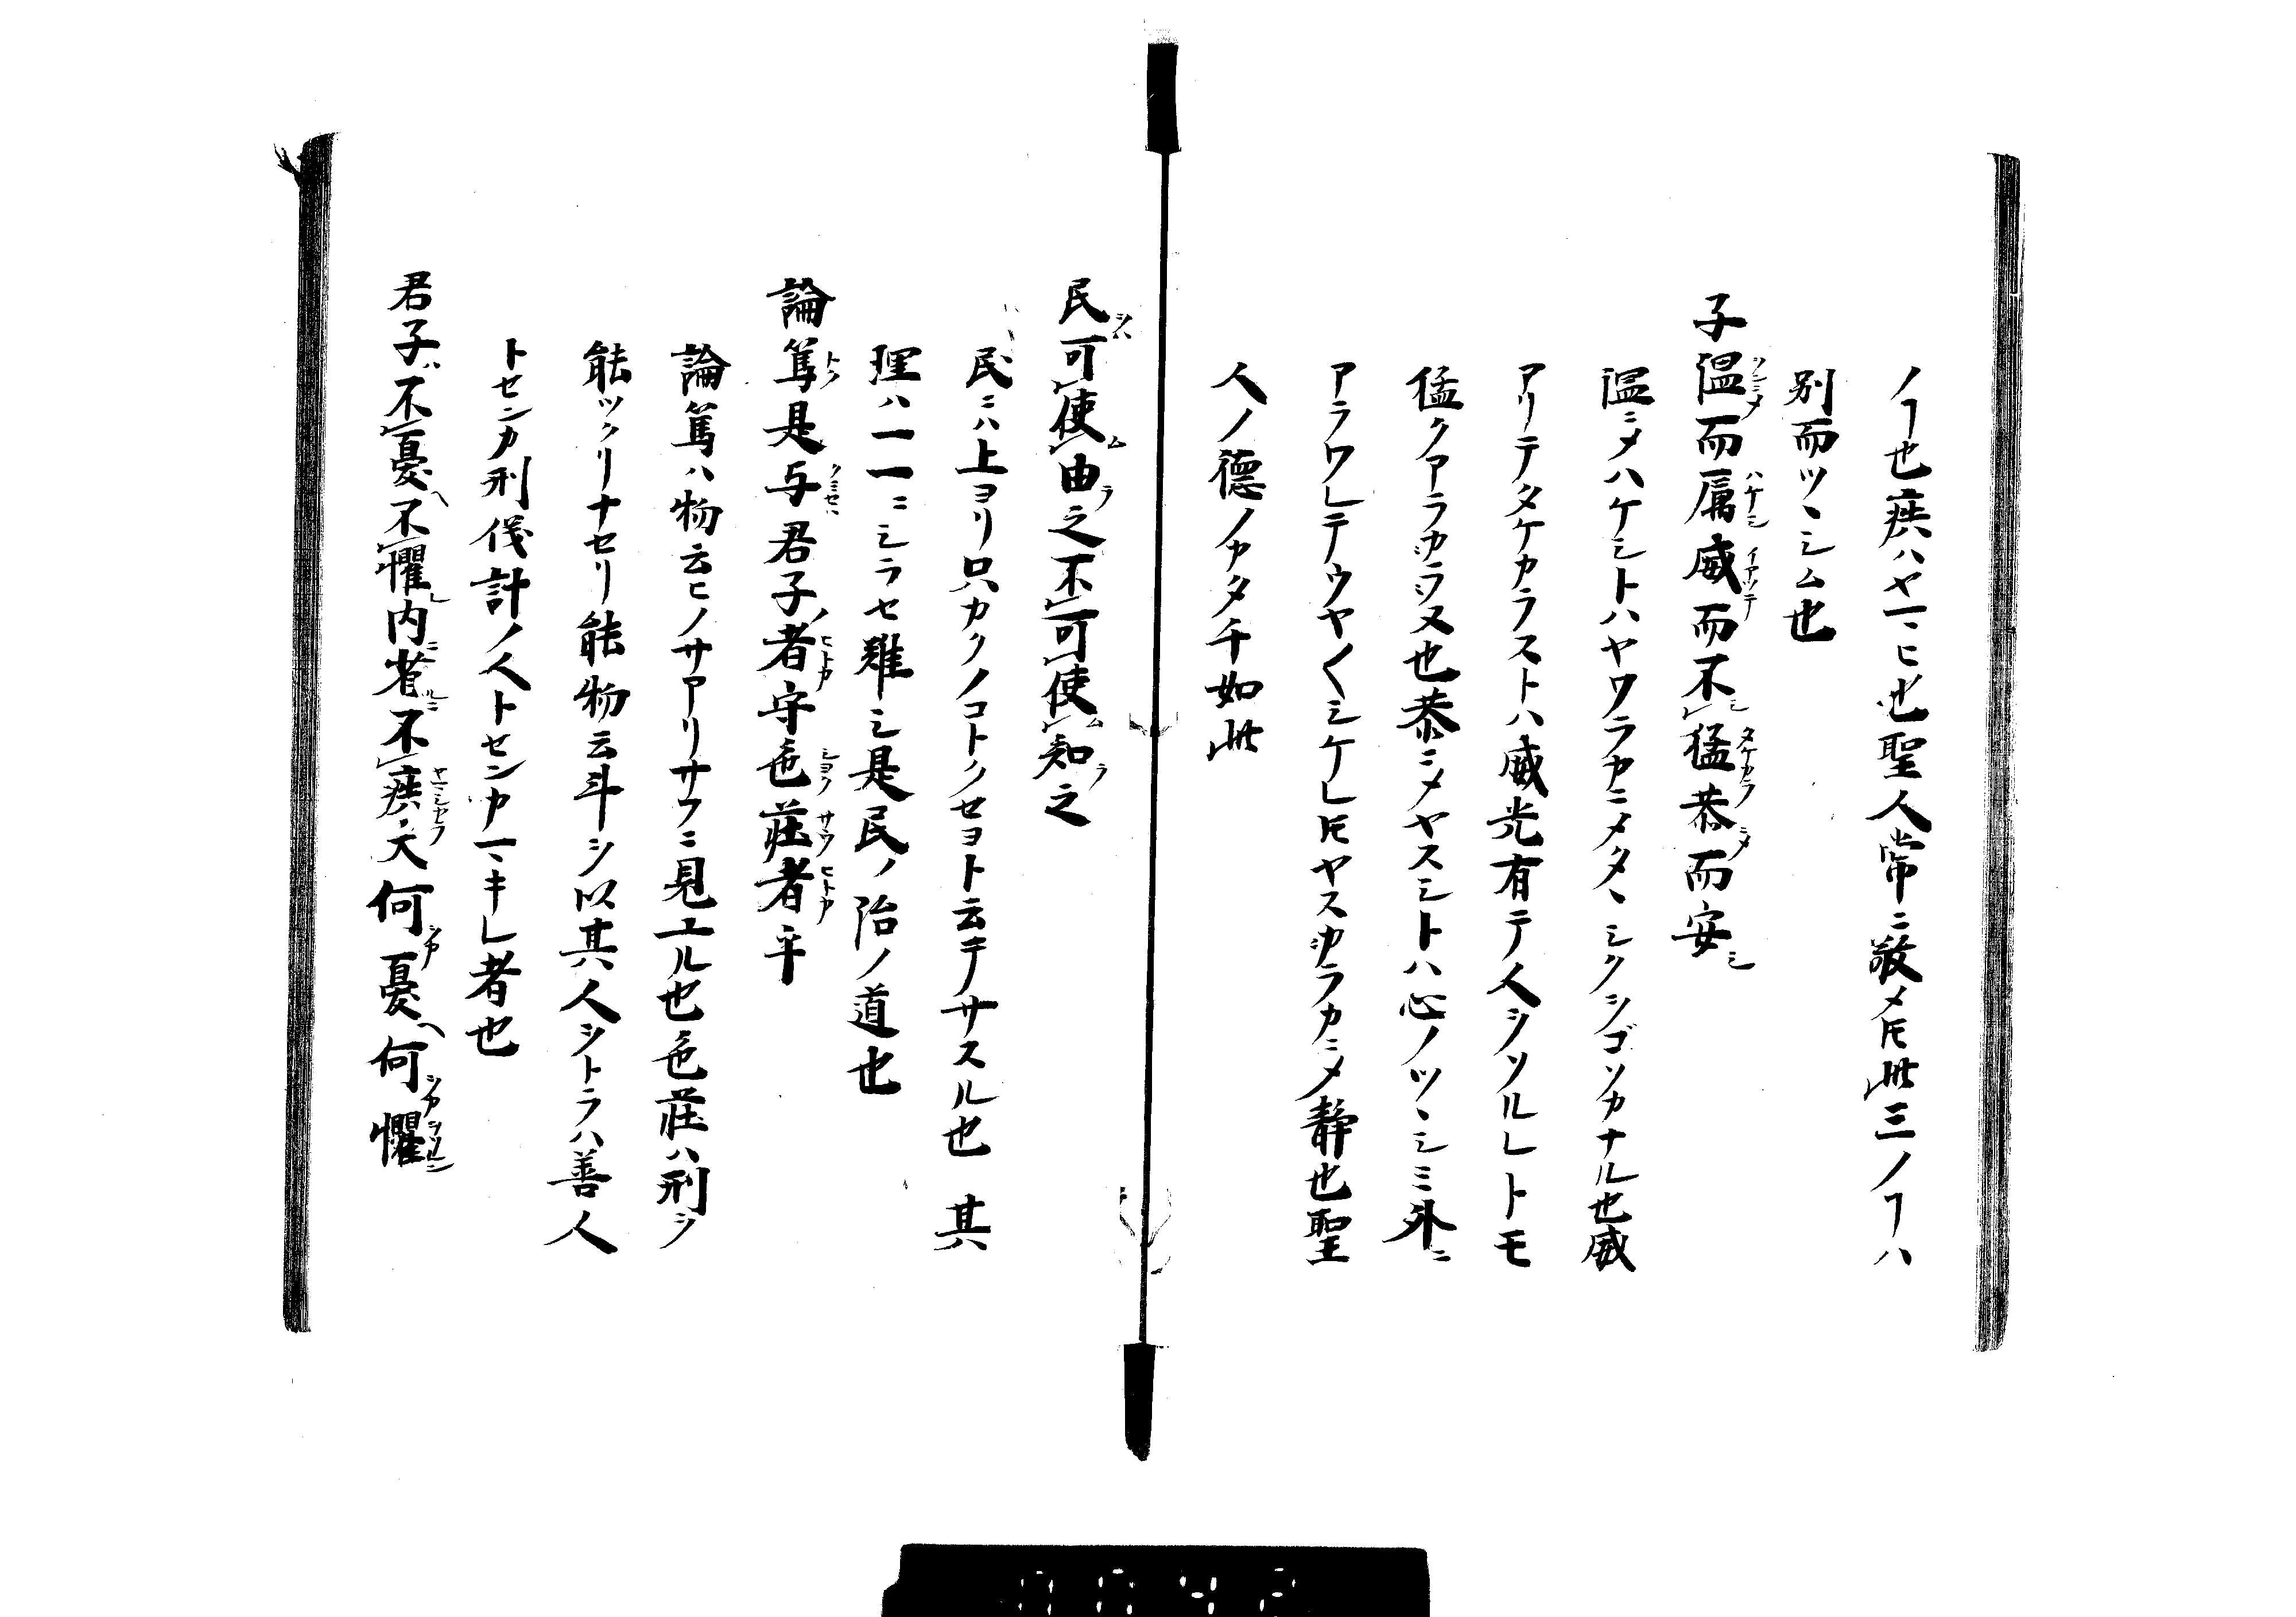 ノヿ也疾ハヤマヒ也聖人常ニ敬メ𪜈此三ノヿハ
別而ツヽシム也
子温而厲威而不猛恭而安
温ニメハケシトハヤワラカニメタヽシクシゴソカナル也威
アリテタケカラストハ威光有テ人シソルレトモ
猛クアラカラヌ也恭ニメヤスシトハ心ノツヽシミ外ニ
アラワレテウヤ〱シケレ𪜈ヤスラカニメ静也聖
人ノ德ノカタチ如此
民可使由之不可使知之
民ニハ上ヨリ只カクノコトクセヨト云テナサスル也其
理ハ一一ニシラセ難シ是民ノ治ノ道也
論篤是与君子者守色荘者乎
論篤ハ物云ヒノサアリサフニ見エル也色荘ハ刑シ
能ツクリナセリ能物云斗シ以其人シトラハ善人
トセンカ刑伐計ノ人トセンカマキレ者也
君子不憂不懼内省不疾夫何憂何懼